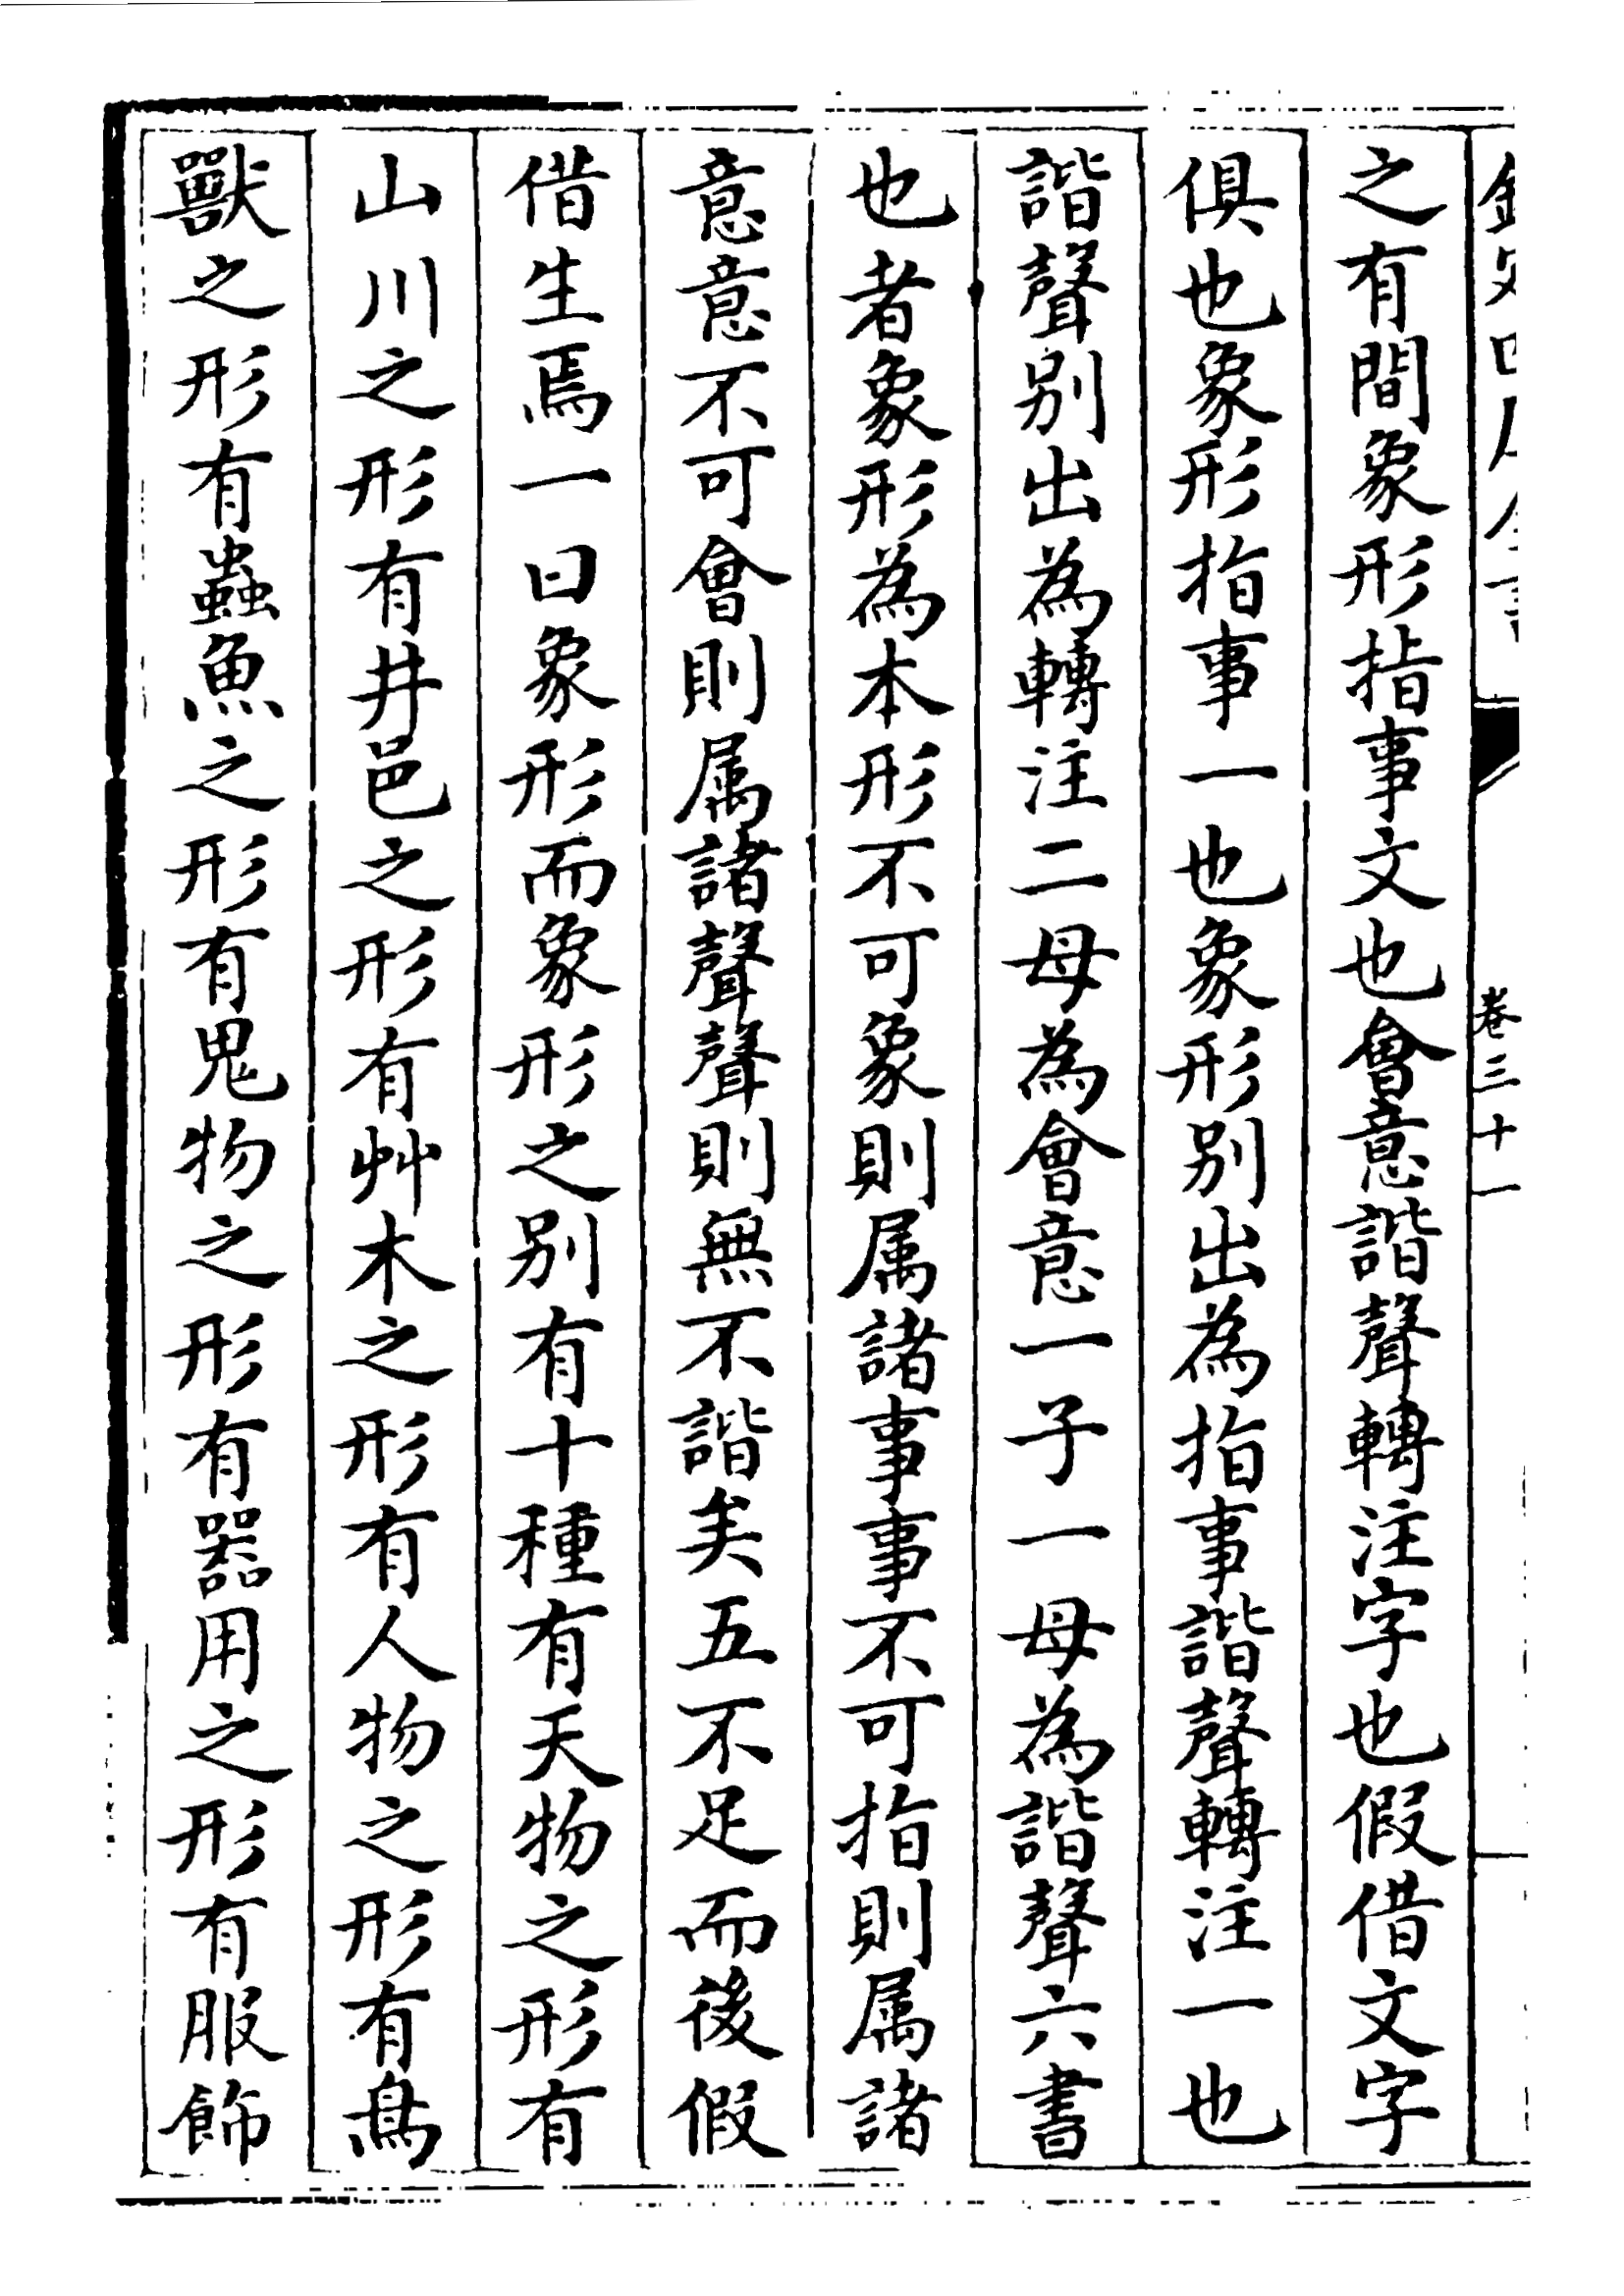 卷三十一
之有間象形指事文也會意諧聲轉注字也假借文字
俱也象形指事一也象形别出為指事諧聲轉注一也
諧聲别出為轉注二母為會意一子一母為諧聲六書
也者象形為本形不可象則属諸事事不可指則属諸
意意不可會則属諸聲聲則無不諧矣五不足而後假
借生焉一曰象形而象形之别有十種有天物之形有
山川之形有井邑之形有艸木之形有人物之形有鳥
獸之形有蟲魚之形有鬼物之形有器用之形有服飾